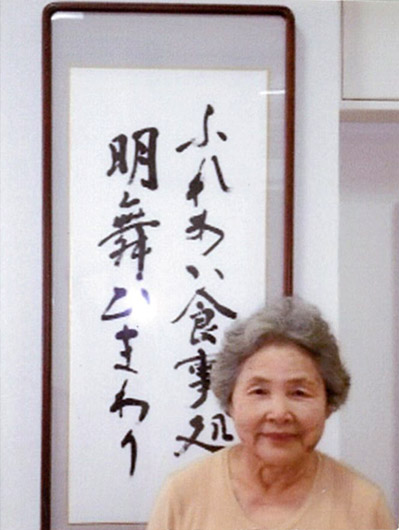 ふれあい食事処
明舞ひまわり